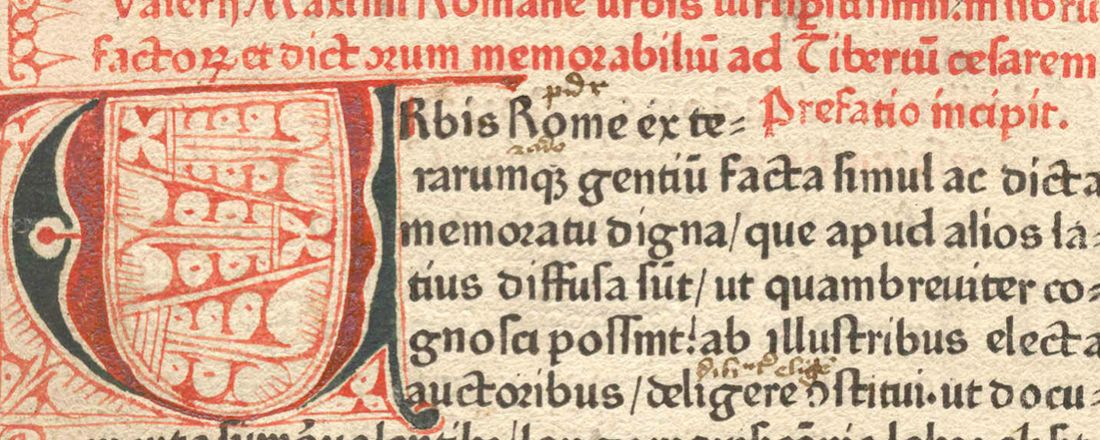 Valerij Maximi Romane urbis
factoꝝ et dictorum memorabiliū ad Tiberiū cesarem
Prefatio incipit.
URbis Rome exte-
rarumqꝫ gentiū facta simul ac dicta
memoratu digna/que apud alios la-
tius diffusa sūt/ut quambreuiter co-
gnosci possint:ab illustribus electa
auctoribus/deligere ꝯstitui.ut docu-